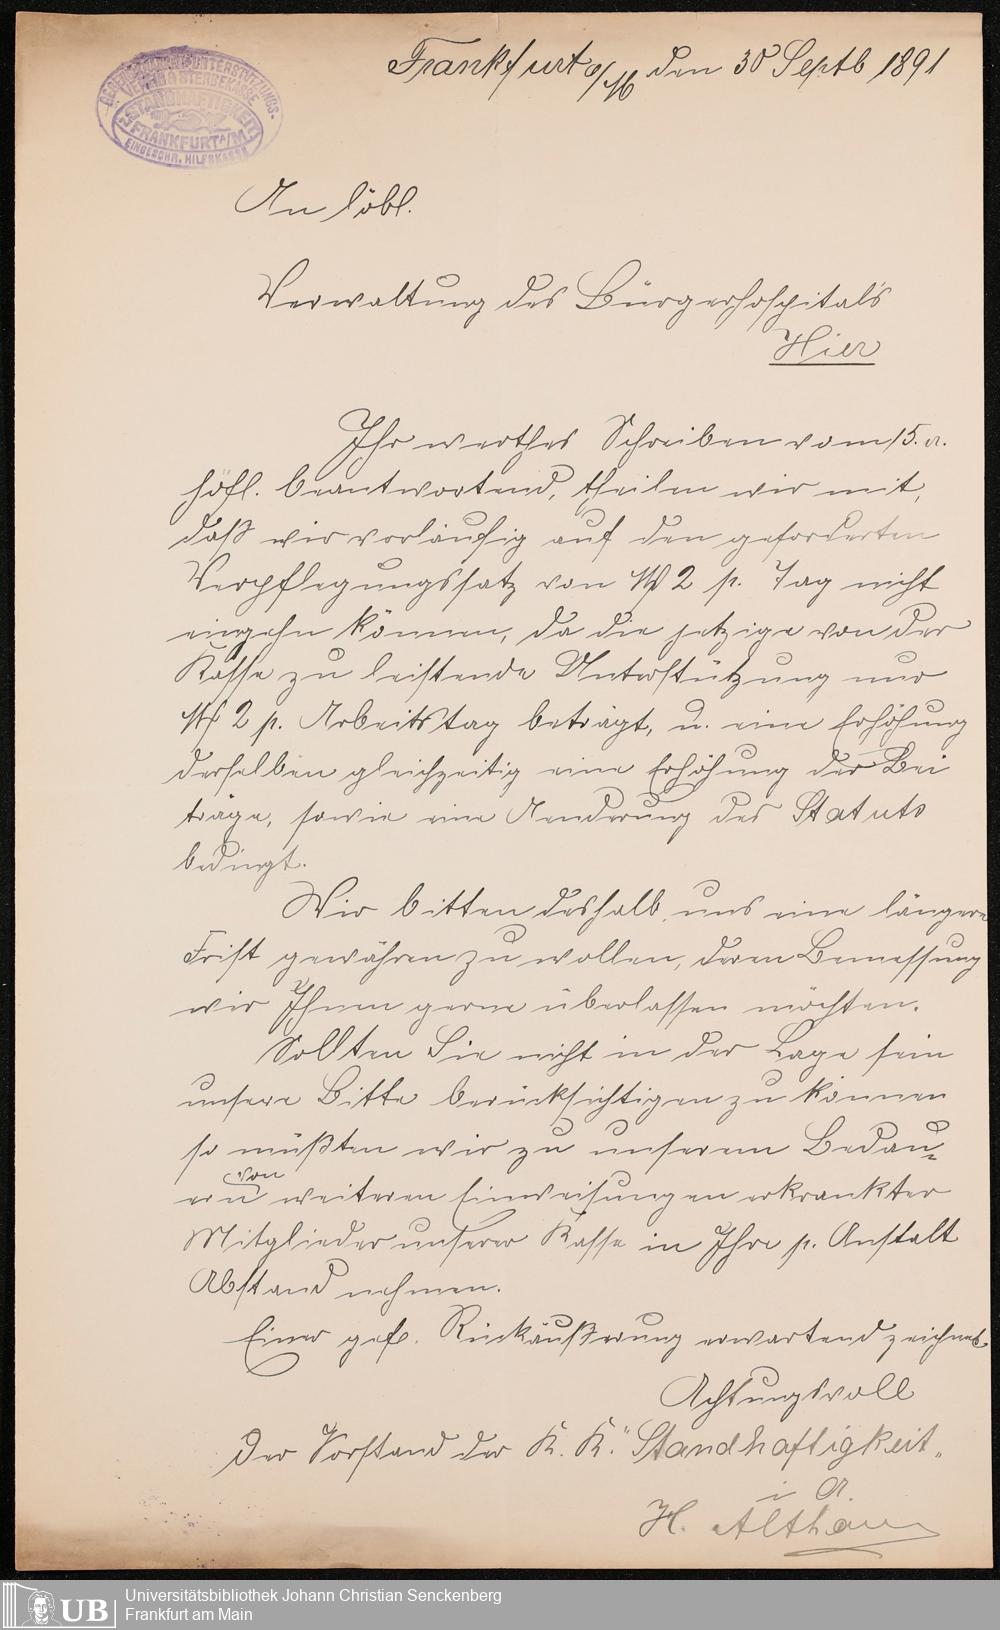 UNTERSTÜTZUNGS-
VEREIN & STERBEKASSE
"STANDHAFTIGKEIT"
FRANKFURT A/M.
EINGESCHR. HILFSKASSE
Frankfurt a/M den 30 Septb 1891
An löbl.
Verwaltung des Bürgerhospitals
Hier
Ihr werthes Schreiben vom 15. a.
höfl. beantwortend, theilen wir mit,
daß wir vorläufig auf den geforderten
Verpflegungssatz von M 2 p. Tag nicht
eingehn können, da die jetzige von der
Kasse zu leistende Unterstützung nur
M 2 p. Arbeitstag beträgt, u. eine Erhöhung
derselben gleichzeitig eine Erhöhung der Bei
träge, sowie eine Aenderung des Statuts
bedingt.
Wir bitten deshalb, uns eine längere
Frist gewähren zu wollen, deren Bemessung
wir Ihnen gerne überlassen möchten.
Sollten Sie nicht in der Lage sein
unsere Bitte berücksichtigen zu können
so müßten wir zu unserem Bedau=
ern von weiteren Einweisungen erkrankter
Mitglieder unserer Kasse in Ihre p. Anstalt
Abstand nehmen.
Einer gef. Rückäußerung erwartend zeichnet
Achtungsvoll
Der Vorstand der K. K. "Standhaftigkeit"
i A
H. Althaus
UB
Universitätsbibliothek Johann Christian Senckenberg
Frankfurt am Main